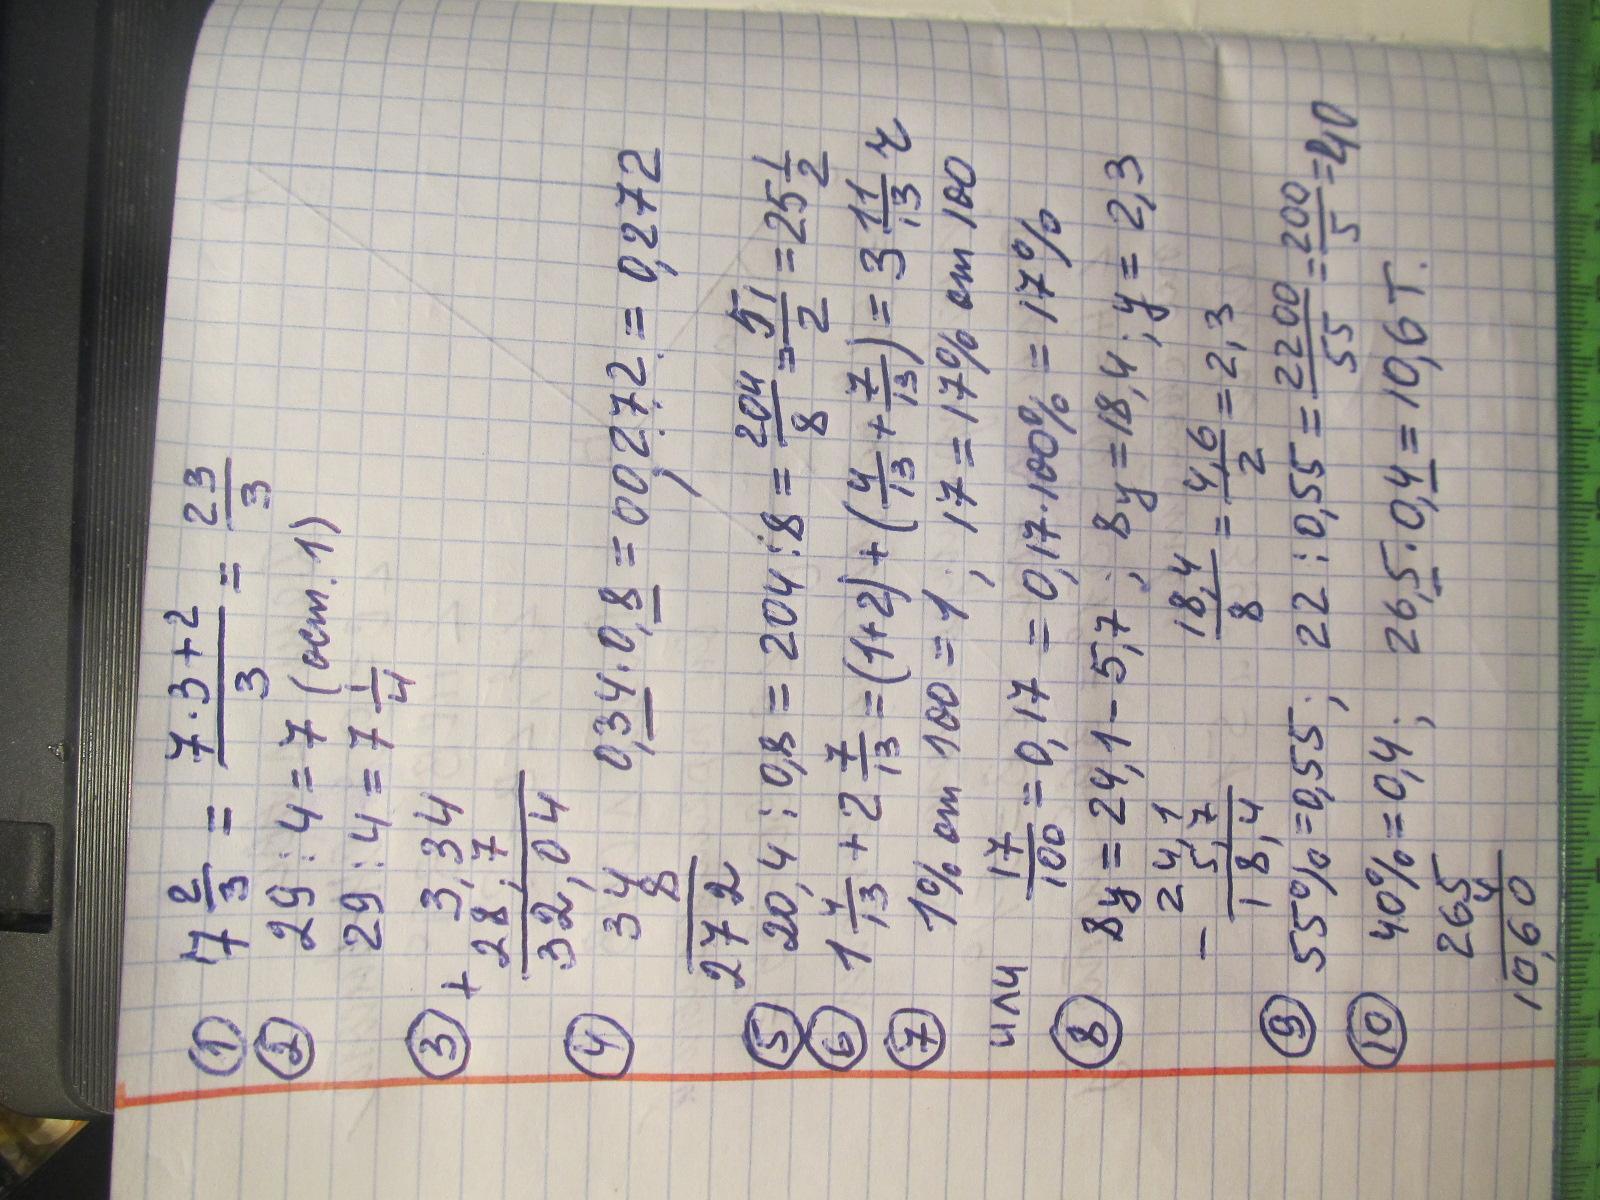 ① 7 2/3 = (7·3+2)/3 = 23/3
② 29 : 4 = 7 (ост. 1)
29 : 4 = 7 1/4
③ + 3,34
28,7
32,04
④ 34 0,34 · 0,8 = 00272 = 0,272
8
272
⑤ 20,4 : 0,8 = 204 : 8 = 204/8 = 51/2 = 25 1/2
⑥ 1 4/13 + 2 7/13 = (1+2) + (4/13 + 7/13) = 3 11/13 г
⑦ 1% от 100 = 1 ; 17 = 17% от 100
или 17/100 = 0,17 = 0,17·100% = 17%
⑧ 8y = 24,1 - 5,7 ; 8y = 18,4 ; y = 2,3
- 24,1 18,4/8 = 4,6/2 = 2,3
5,7
18,4
⑨ 55% = 0,55 ; 22 : 0,55 = 2200/55 = 200/5 = 40
⑩ 40% = 0,4 ; 26,5 · 0,4 = 10,6 т.
265
4
10,60